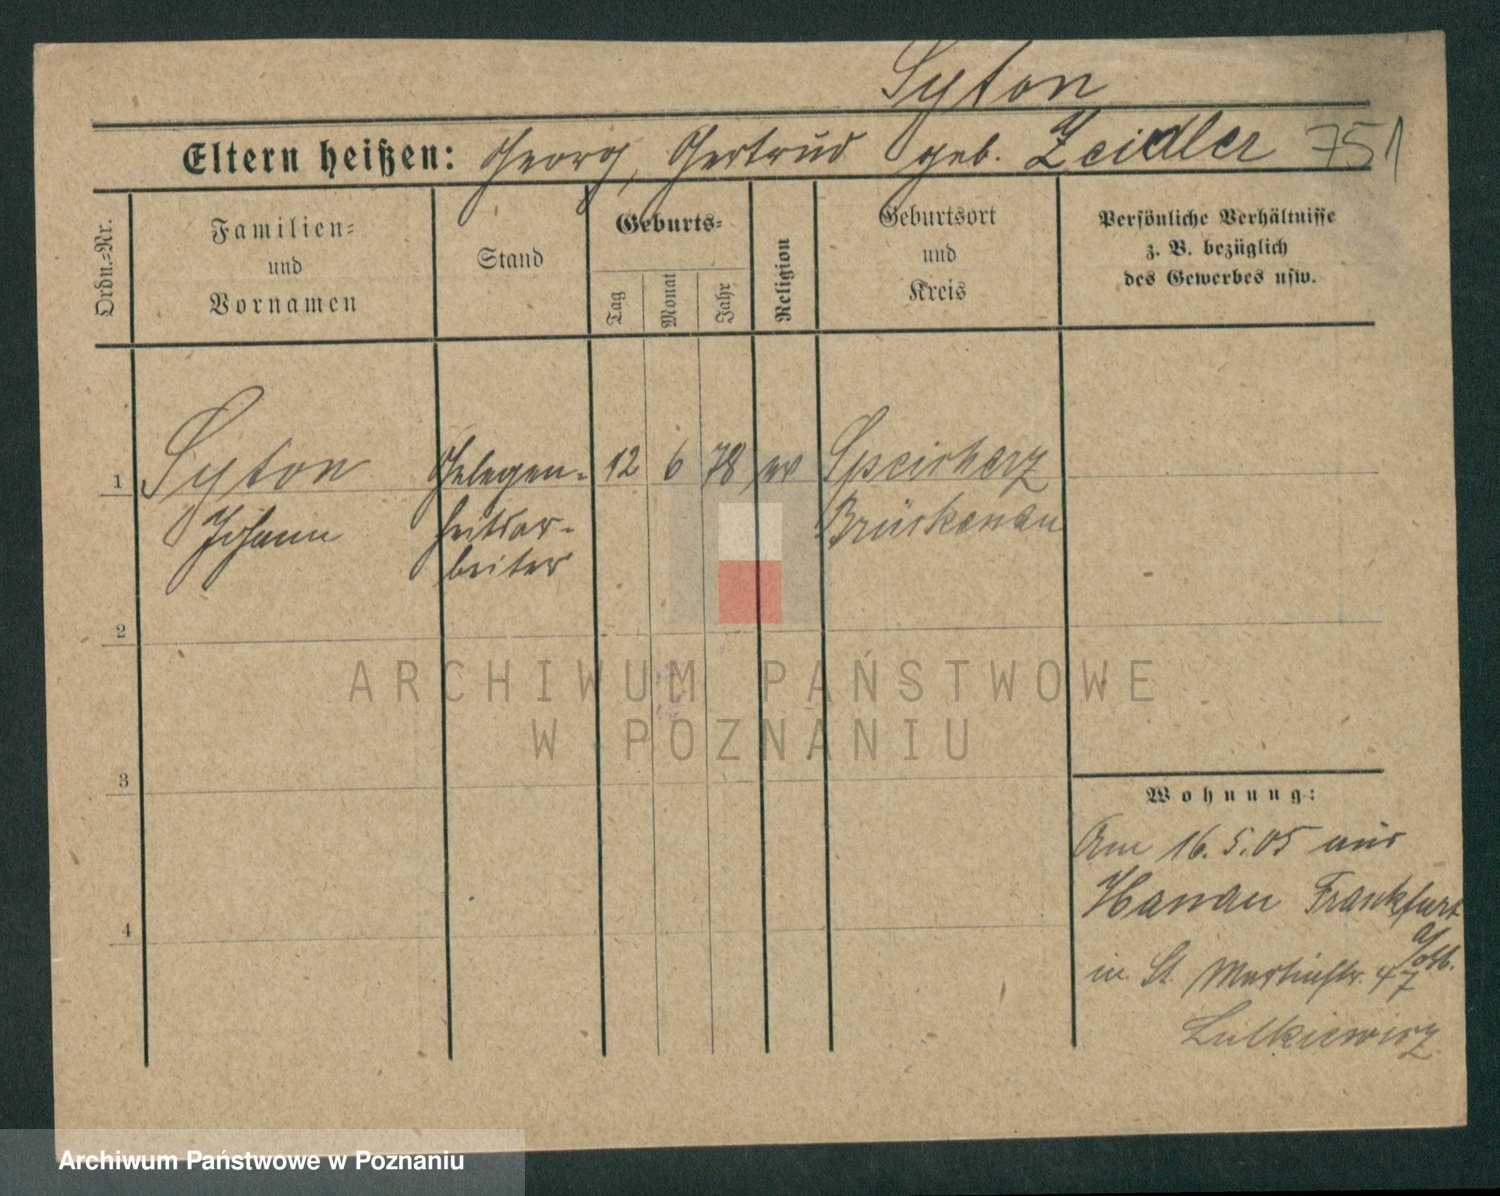 Syton
Eltern heißen: Georg, Gertrud geb. Zeidler 751
Ordn.=Nr.
Familien=
und
Vornamen
Stand
Geburts=
Tag
Monat
Jahr
Religion
Geburtsort
und
Kreis
Persönliche Verhältnisse
z. B. bezüglich
des Gewerbes usw.
1 Syton Gelegen= 12 6 78 ev
Johann heitsar-
beiter
Brückenau
2
3
4
Wohnung:
Am 16.5.05 aus
Hanau Frankfurt
in St. Martinstr. 47
Lutkiewicz
ARCHIWUM PAŃSTWOWE
W POZNANIU
Archiwum Państwowe w Poznaniu